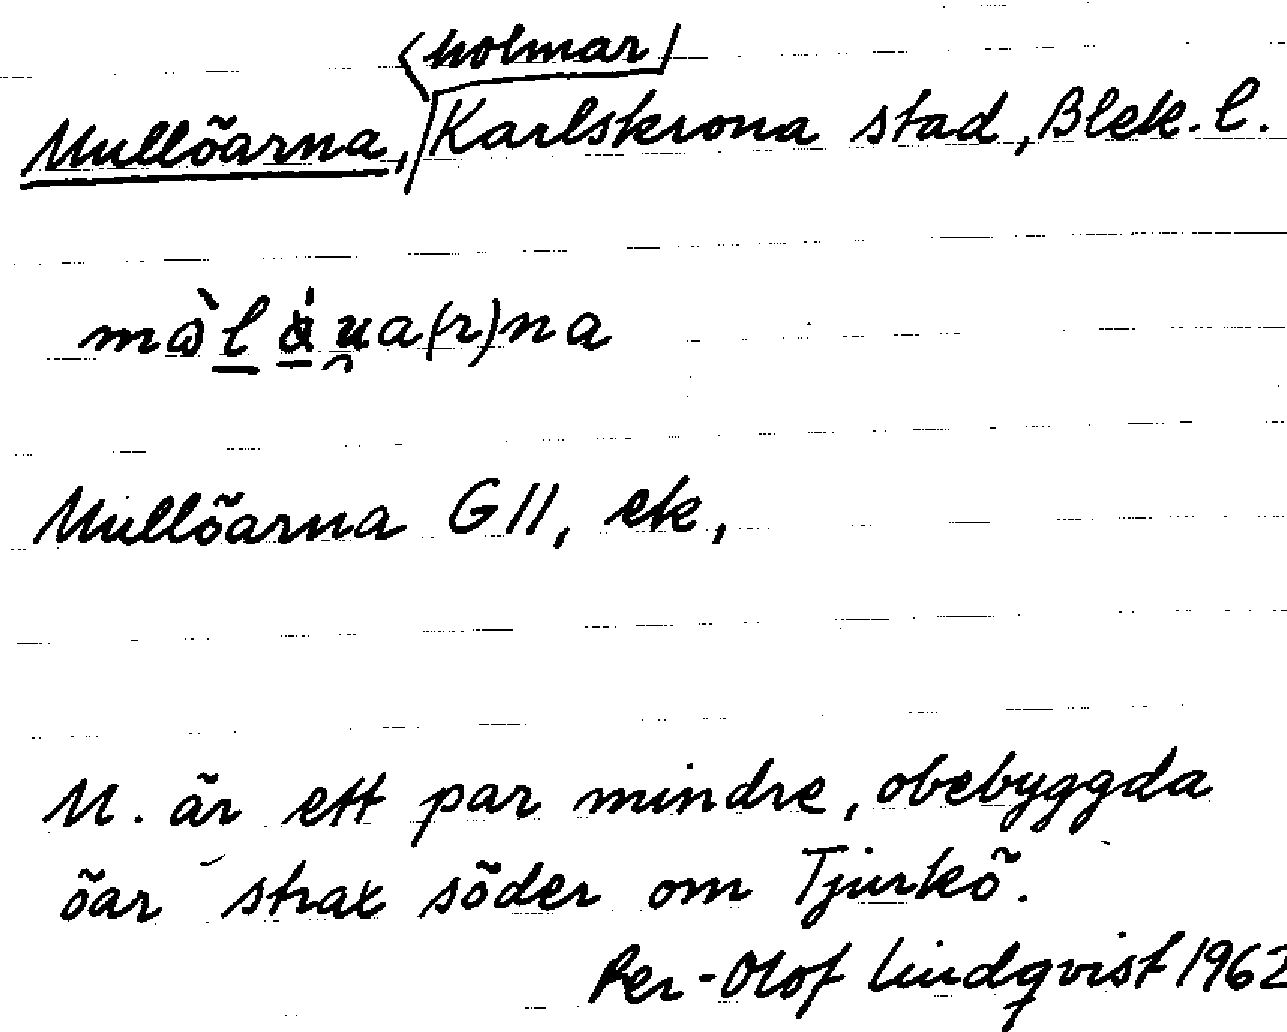 Mullöarna, (holmar) Karlskrona stad, Blek. l.
Mullöarna G11, ek,
M. är ett par mindre, obebyggda
öar strax söder om Tjurkö.
Per-Olof Lindqvist 1962